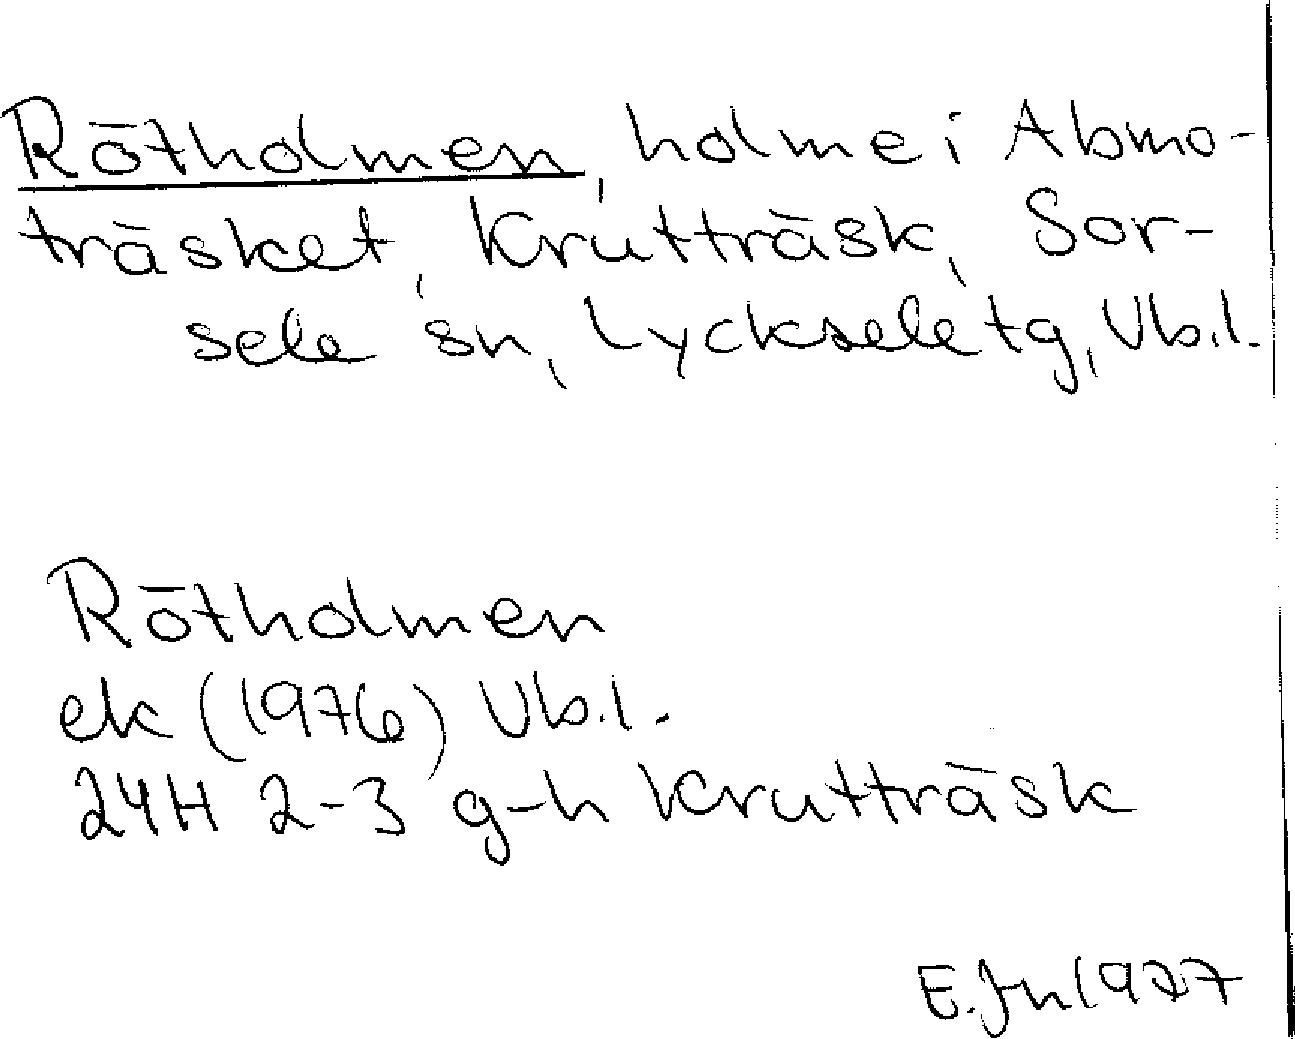 Rötholmen, holme i Abmo-
träsket, Krutträsk, Sor-
sele sn, Lycksele tg, Vb.l.
Rötholmen
ek (1976) Vb.l.
24H 2-3 g-h Krutträsk
E. Jn 1977